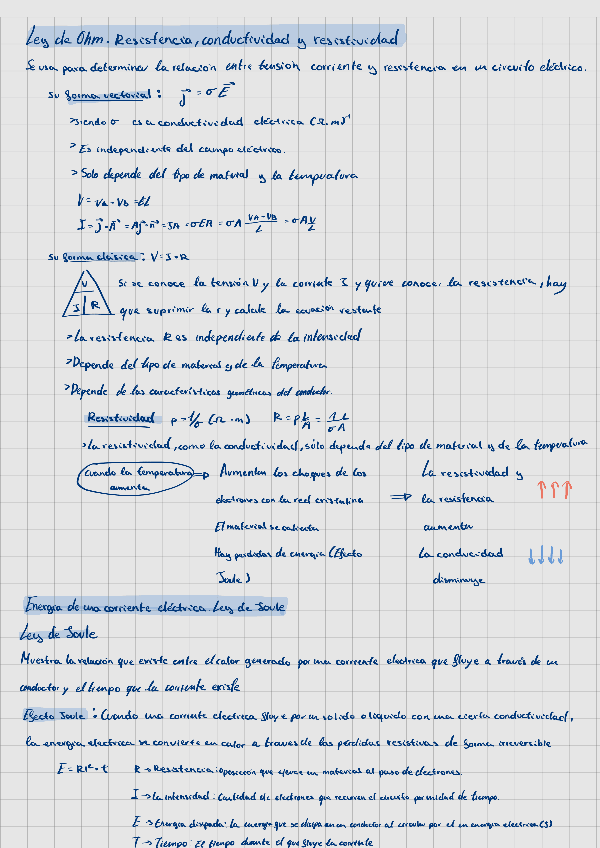 Ley de Ohm. Resistencia, conductividad y resistividad
Se usa para determinar la relación entre tensión corriente y resistencia en un circuito eléctrico.
Su forma vectorial: j⃗ = σ E⃗
>siendo σ es a conductividad eléctrica (Ω·m)⁻¹
> Es independiente del campo eléctrico.
> Solo depende del tipo de material y la temperatura
V = VA - VB = EL
I = j⃗·A⃗ = Aj⃗·n⃗ = JA = σEA = σA (VA-VB)/L = σA V/L
Su forma clásica: V = I·R
V
I | R
Si se conoce la tensión V y la corriente I y quiere conocer la resistencia, hay
que suprimir la r y calcule la ecuación restante
>La resistencia R es independiente de la intensidad
>Depende del tipo de material y de la temperatura
>Depende de las características geométricas del conductor.
Resistividad ρ = 1/σ (Ω·m) R = ρ L/A = 1L/σA
>La resistividad, como la conductividad, sólo depende del tipo de material y de la temperatura
Cuando la temperatura
aumenta
⇒ Aumentan los choques de los
electrones con la red cristalina
El material se calienta
Hay perdidas de energía (Efecto
Joule)
⇒ La resistividad y
la resistencia
aumentan
↑↑↑
La conducidad
disminuye
↓↓↓↓
Energía de una corriente eléctrica. Ley de Joule
Ley de Joule
Muestra la relación que existe entre el calor generado por una corriente electrica que fluye a través de un
conductor y el tiempo que la corriente existe
Efecto Joule: Cuando una corriente electrica fluye por un solido o liquido con una cierta conductividad,
la energia electrica se convierte en calor a traves de las pérdidas resistivas de forma irreversible
E = RI²·t R → Resistencia: oposición que ejerce un material al paso de electrones.
I → la intensidad: Cantidad de electrones que recorren el circuito por unidad de tiempo.
E → Energía disipada: la energía que se disipa en un conductor al circular por el un energia electrica (J)
T → Tiempo: El tiempo durante el que fluye la corriente